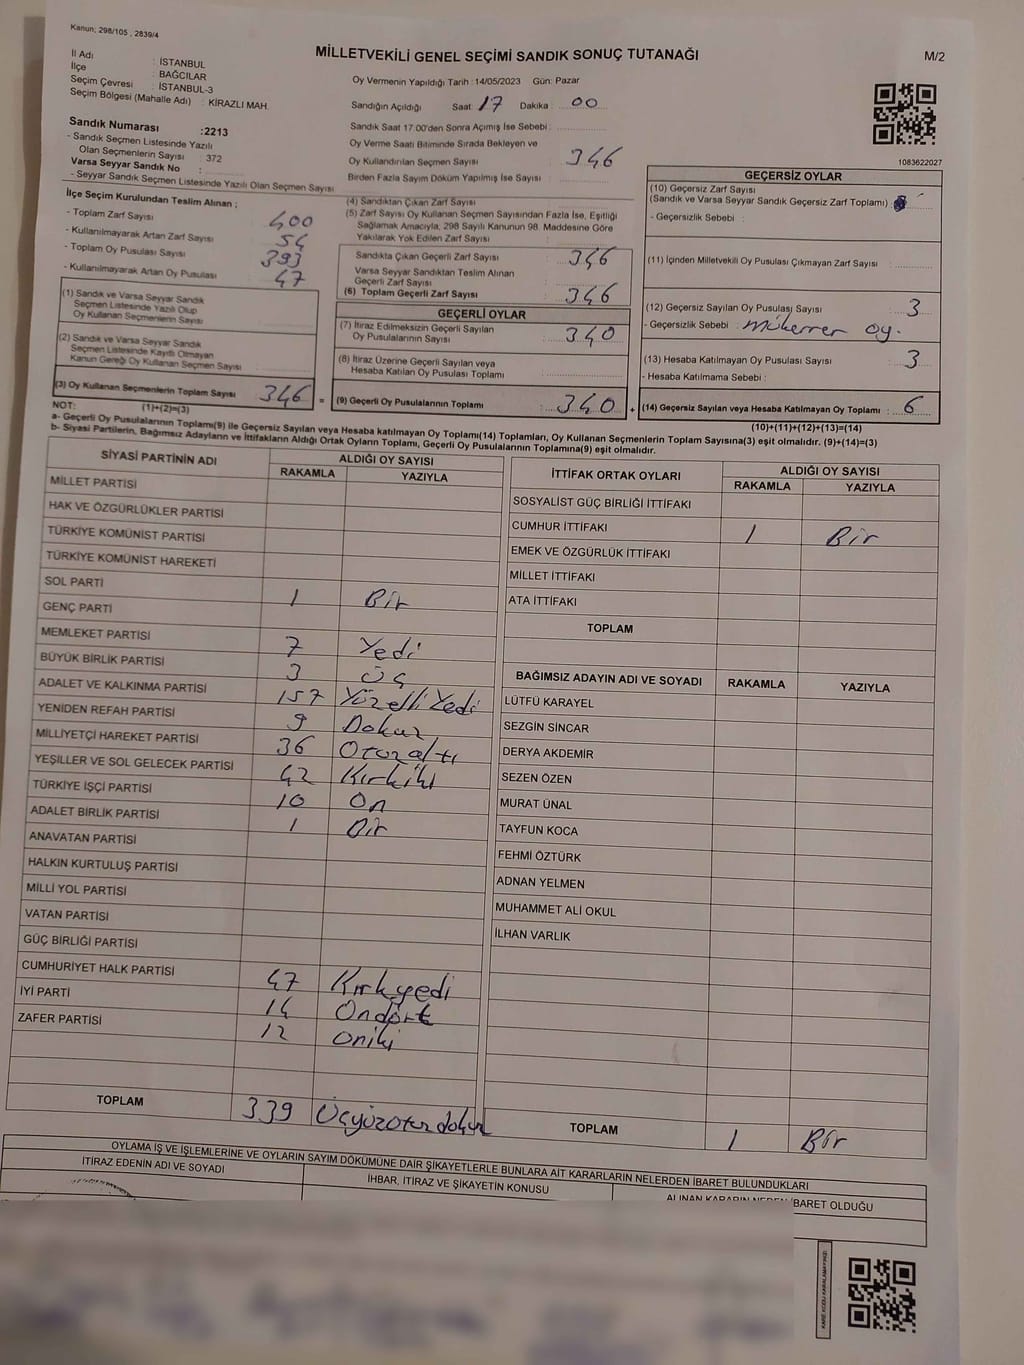 Kanun; 298/105 , 2839/4
MİLLETVEKİLİ GENEL SEÇİMİ SANDIK SONUÇ TUTANAĞI
M/2
İl Adı : İSTANBUL
İlçe : BAĞCILAR
Seçim Çevresi : İSTANBUL-3
Seçim Bölgesi (Mahalle Adı) : KİRAZLI MAH.
Sandık Numarası :2213
- Sandık Seçmen Listesinde Yazılı
Olan Seçmenlerin Sayısı : 372
Varsa Seyyar Sandık No :
- Seyyar Sandık Seçmen Listesinde Yazılı Olan Seçmen Sayısı
Oy Vermenin Yapıldığı Tarih : 14/05/2023 Gün: Pazar
Sandığın Açıldığı Saat: 17 Dakika : 00
Sandık Saat 17:00'den Sonra Açımış İse Sebebi :
Oy Verme Saati Bitiminde Sırada Bekleyen ve
Oy Kullandırılan Seçmen Sayısı 346
Birden Fazla Sayım Döküm Yapılmış İse Sayısı
1083622027
İlçe Seçim Kurulundan Teslim Alınan ;
- Toplam Zarf Sayısı 400
- Kullanılmayarak Artan Zarf Sayısı 54
- Toplam Oy Pusulası Sayısı 393
- Kullanılmayarak Artan Oy Pusulası 47
(1) Sandık ve Varsa Seyyar Sandık
Seçmen Listesinde Yazılı Olup
Oy Kullanan Seçmenlerin Sayısı
(2) Sandık ve Varsa Seyyar Sandık
Seçmen Listesinde Kayıtlı Olmayan
Kanun Gereği Oy Kullanan Seçmen Sayısı
(3) Oy Kullanan Seçmenlerin Toplam Sayısı 346 =
(4) Sandıktan Çıkan Zarf Sayısı
(5) Zarf Sayısı Oy Kullanan Seçmen Sayısından Fazla İse, Eşitliği
Sağlamak Amacıyla, 298 Sayılı Kanunun 98. Maddesine Göre
Yakılarak Yok Edilen Zarf Sayısı
Sandıkta Çıkan Geçerli Zarf Sayısı 346
Varsa Seyyar Sandıktan Teslim Alınan
Geçerli Zarf Sayısı
(6) Toplam Geçerli Zarf Sayısı 346
GEÇERLİ OYLAR
(7) İtiraz Edilmeksizin Geçerli Sayılan
Oy Pusulalarının Sayısı 340
(8) İtiraz Üzerine Geçerli Sayılan veya
Hesaba Katılan Oy Pusulası Toplamı
(9) Geçerli Oy Pusulalarının Toplamı : 340 +
GEÇERSİZ OYLAR
(10) Geçersiz Zarf Sayısı
(Sandık ve Varsa Seyyar Sandık Geçersiz Zarf Toplamı) :
- Geçersizlik Sebebi :
(11) İçinden Milletvekili Oy Pusulası Çıkmayan Zarf Sayısı
(12) Geçersiz Sayılan Oy Pusulası Sayısı 3
- Geçersizlik Sebebi : Mükerrer oy.
(13) Hesaba Katılmayan Oy Pusulası Sayısı 3
- Hesaba Katılmama Sebebi :
(14) Geçersiz Sayılan veya Hesaba Katılmayan Oy Toplamı : 6
NOT: (1)+(2)=(3)
(10)+(11)+(12)+(13)=(14)
a- Geçerli Oy Pusulalarının Toplamı(9) ile Geçersiz Sayılan veya Hesaba Katılmayan Oy Toplamı(14) Toplamları, Oy Kullanan Seçmenlerin Toplam Sayısına(3) eşit olmalıdır. (9)+(14)=(3)
b- Siyasi Partilerin, Bağımsız Adayların ve İttifakların Aldığı Ortak Oyların Toplamı, Geçerli Oy Pusulalarının Toplamına(9) eşit olmalıdır.
SİYASİ PARTİNİN ADI
ALDIĞI OY SAYISI
RAKAMLA YAZIYLA
MİLLET PARTİSİ
HAK VE ÖZGÜRLÜKLER PARTİSİ
TÜRKİYE KOMÜNİST PARTİSİ
TÜRKİYE KOMÜNİST HAREKETİ
SOL PARTİ 1 Bir
GENÇ PARTİ
MEMLEKET PARTİSİ 7 Yedi
BÜYÜK BİRLİK PARTİSİ 3 Üç
ADALET VE KALKINMA PARTİSİ 157 Yüzelli Yedi
YENİDEN REFAH PARTİSİ 9 Dokuz
MİLLİYETÇİ HAREKET PARTİSİ 36 Otuzaltı
YEŞİLLER VE SOL GELECEK PARTİSİ 42 Kırkiki
TÜRKİYE İŞÇİ PARTİSİ 10 On
ADALET BİRLİK PARTİSİ 1 Bir
ANAVATAN PARTİSİ
HALKIN KURTULUŞ PARTİSİ
MİLLİ YOL PARTİSİ
VATAN PARTİSİ
GÜÇ BİRLİĞİ PARTİSİ
CUMHURİYET HALK PARTİSİ 47 Kırkyedi
İYİ PARTİ 14 Ondört
ZAFER PARTİSİ 12 oniki
TOPLAM 339 Üçyüzotuzdokuz
İTTİFAK ORTAK OYLARI
ALDIĞI OY SAYISI
RAKAMLA YAZIYLA
SOSYALİST GÜÇ BİRLİĞİ İTTİFAKI
CUMHUR İTTİFAKI 1 Bir
EMEK VE ÖZGÜRLÜK İTTİFAKI
MİLLET İTTİFAKI
ATA İTTİFAKI
TOPLAM
BAĞIMSIZ ADAYIN ADI VE SOYADI RAKAMLA YAZIYLA
LÜTFÜ KARAYEL
SEZGİN SİNCAR
DERYA AKDEMİR
SEZEN ÖZEN
MURAT ÜNAL
TAYFUN KOCA
FEHMİ ÖZTÜRK
ADNAN YELMEN
MUHAMMET ALİ OKUL
İLHAN VARLIK
TOPLAM 1 Bir
OYLAMA İŞ VE İŞLEMLERİNE VE OYLARIN SAYIM DÖKÜMÜNE DAİR ŞİKAYETLERLE BUNLARA AİT KARARLARIN NELERDEN İBARET BULUNDUKLARI
İTİRAZ EDENİN ADI VE SOYADI
İHBAR, İTİRAZ VE ŞİKAYETİN KONUSU
ALINAN KARARIN NEDEN İBARET OLDUĞU
KARE KODU KARALAMAYINIZ!